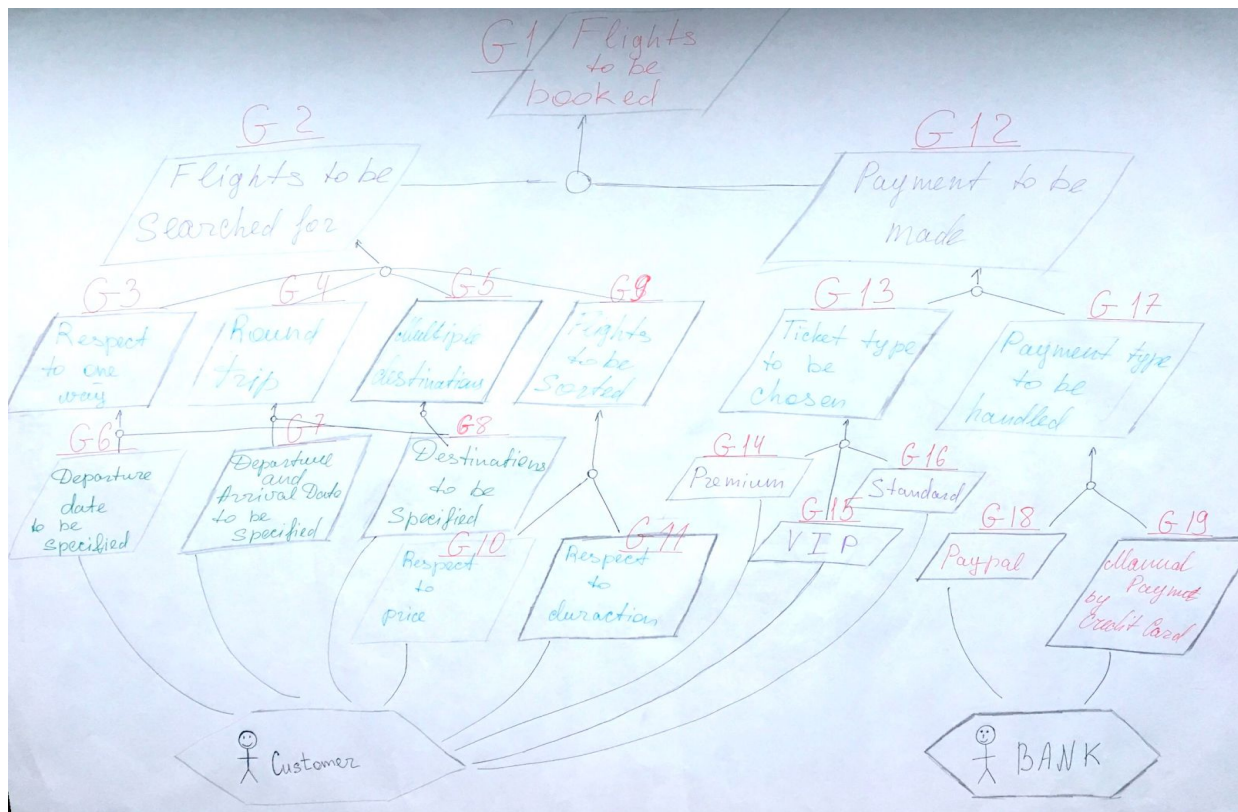 G1
Flights
to be
booked
G2
Flights to be
Searched for
G12
Payment to be
made
G3
Respect
to one
way
G4
Round
trip
G5
Multiple
distinations
G9
Flights
to be
Sorted
G13
Ticket type
to be
chosen
G17
Payment type
to be
handled
G6
Departure
date
to be
specified
G7
Departure
and
Arrival Date
to be
Specified
G8
Destinations
to be
Specified
G10
Respect
to
price
G11
Respect
to
duraction
G14
Premium
G15
VIP
G16
Standard
G18
Paypal
G19
Manual
by
Credit Card
Customer
BANK